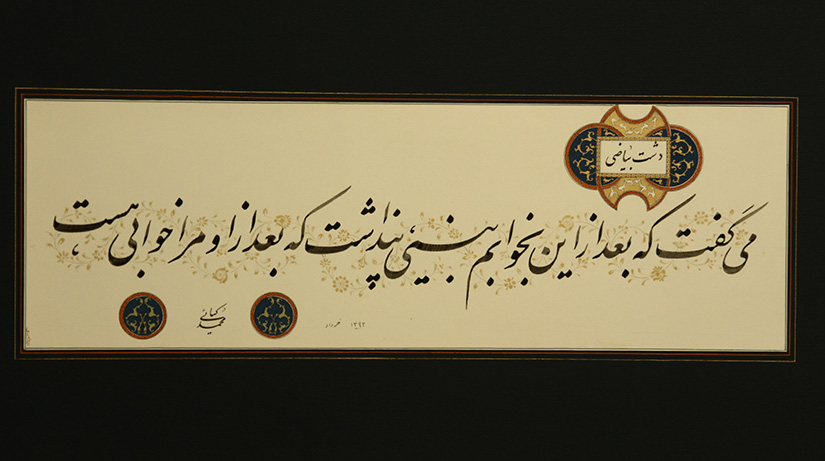 دشت بیاضی
می گفت که بعد از این بخوابم بینی، پنداشت که بعد از او مرا خوابی هست
خرداد ۱۳۹۲
حمید کیانی